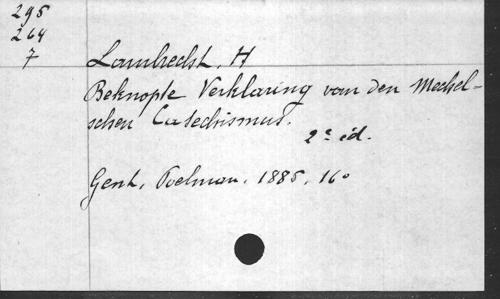 295
264
7
Lambrecht, H
Beknopte Verklaring van den Mechel-
schen Catechismus.
2e éd.
Gent, Poelman, 1885, 16o